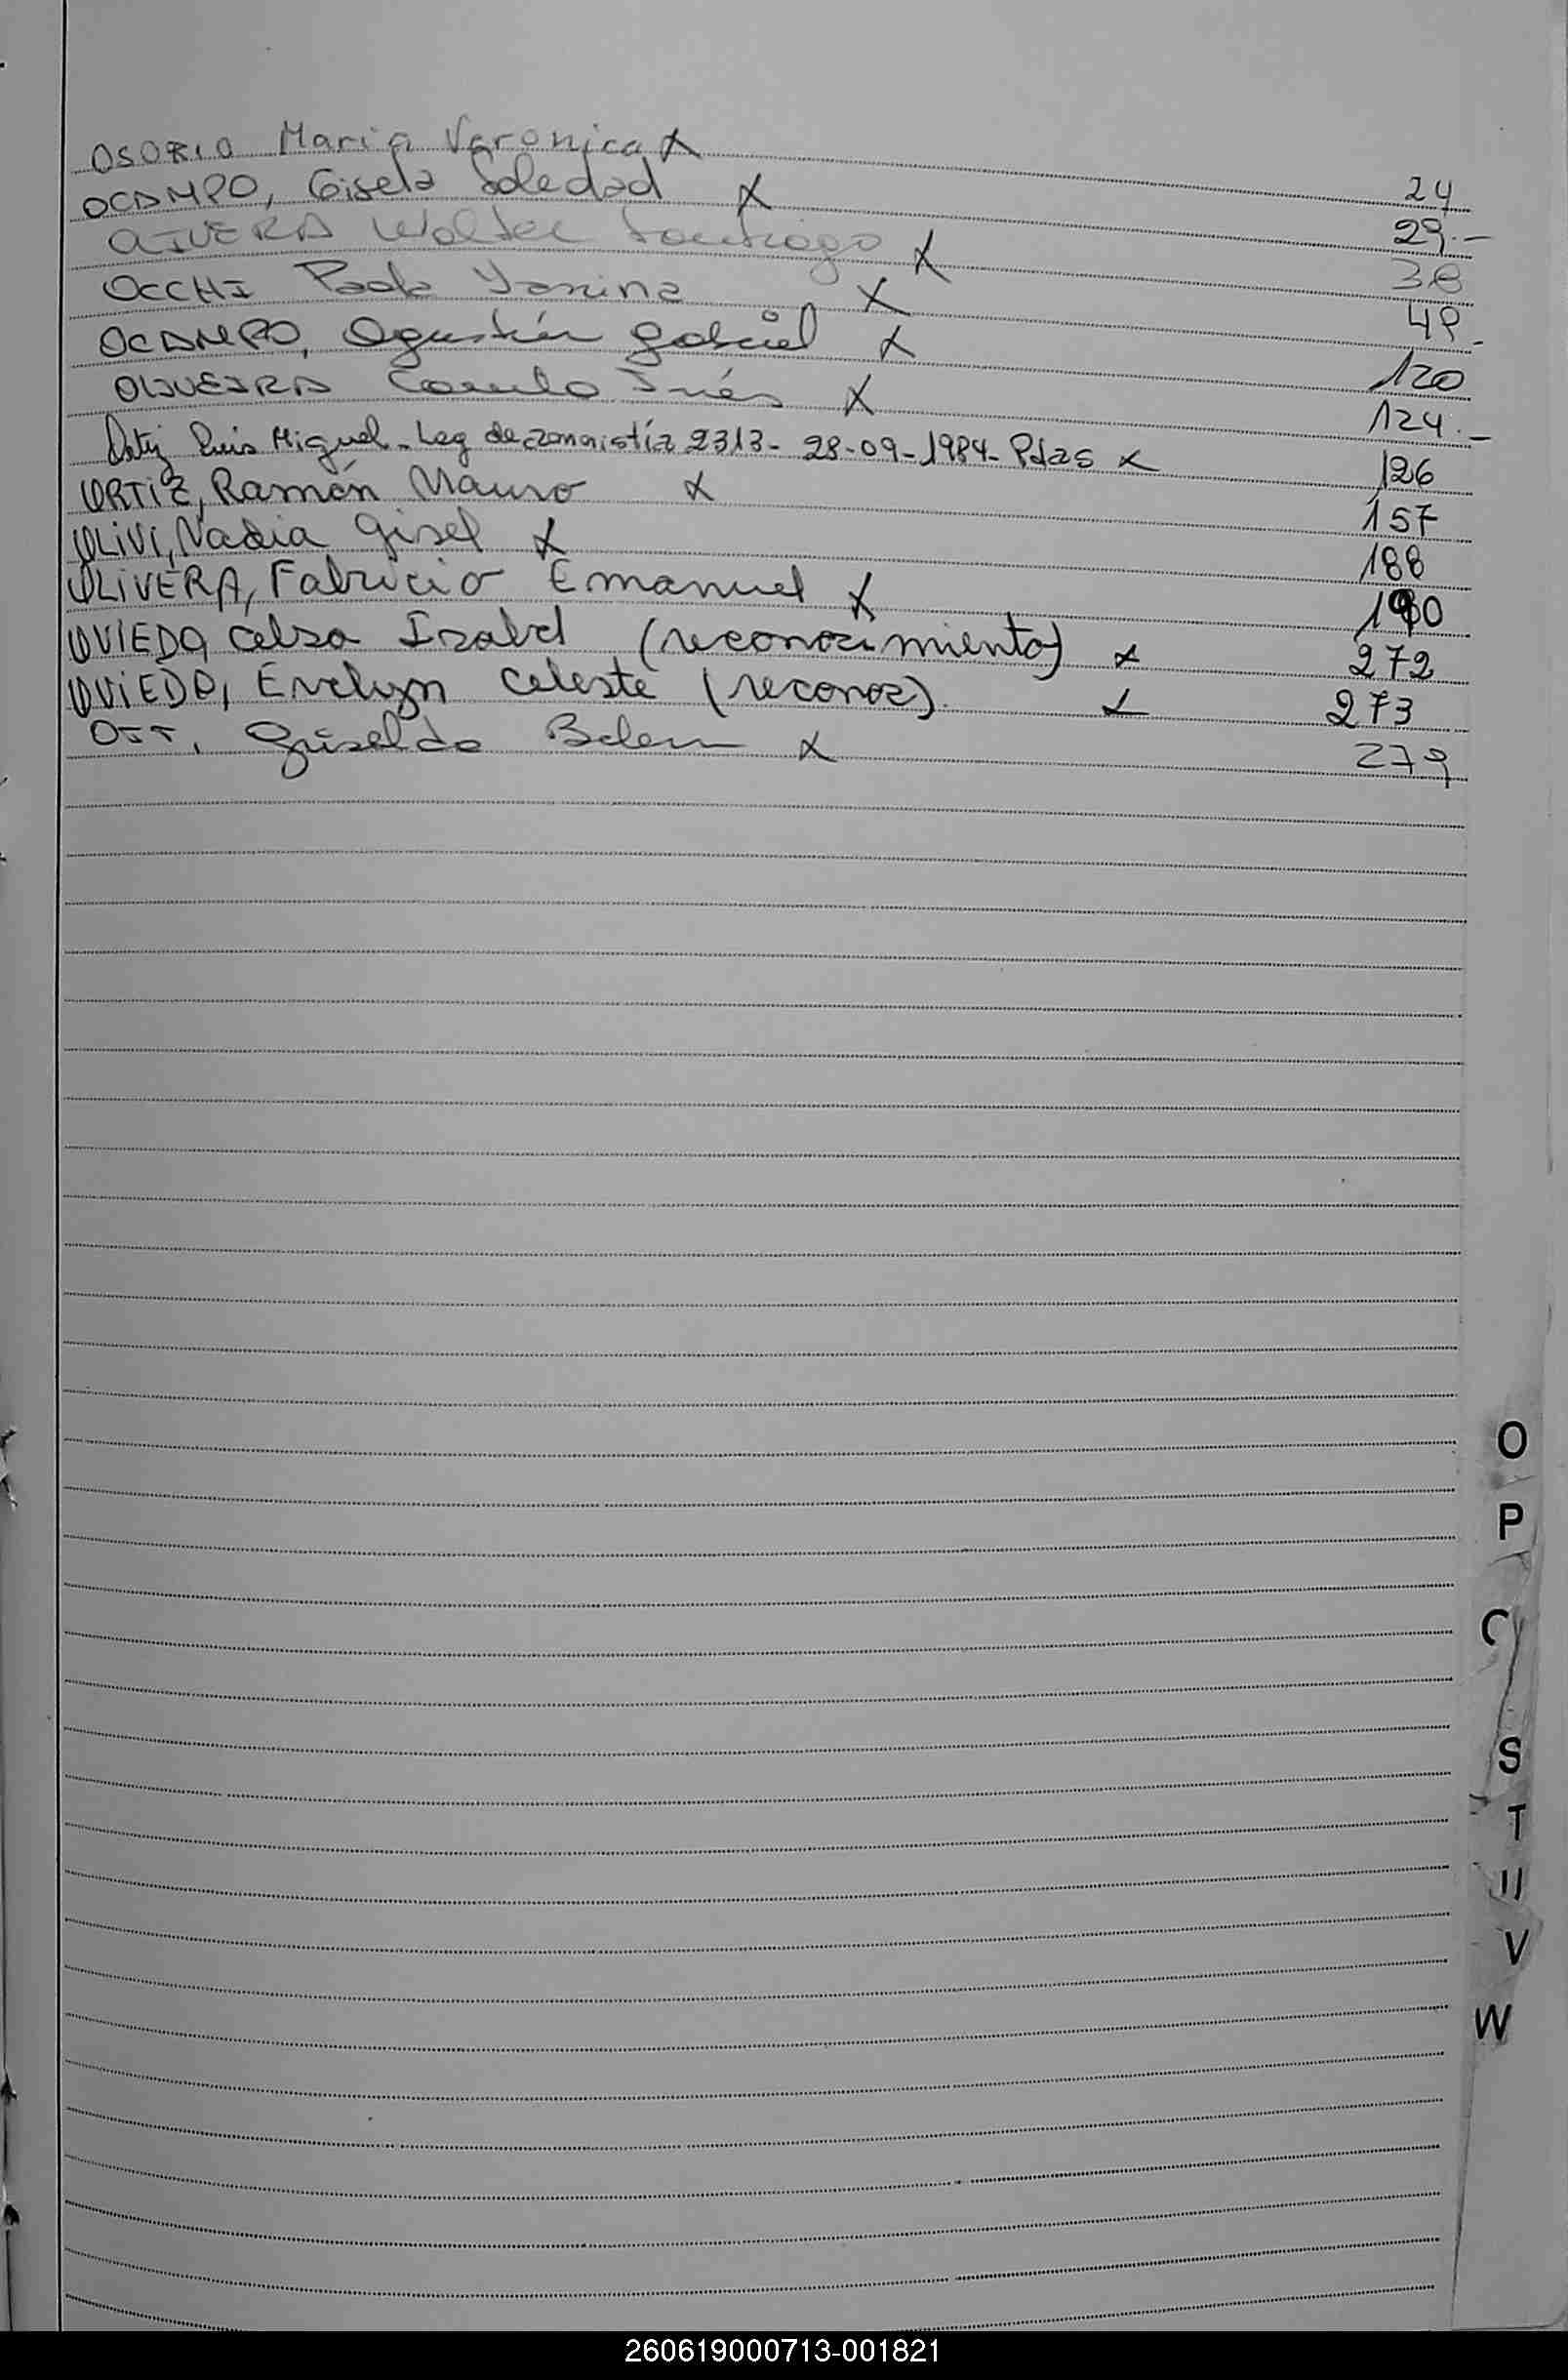 OSORIO Maria Veronica X 24
OCAMPO, Gisela Soledad X 29.-
OLIVERA Walter Santiago X 38
OCCHI Paola Yanina X 48
OCAMPO, Agustín Gabriel X 120
OLIVEIRA Camila Inés X 124.-
Ortiz Luis Miguel - Leg de 2313 - 28-09-1984 - Pdas X 126
ORTIZ, Ramón Mauro X 157
OLIVI, Nadia Gisel X 188
OLIVERA, Fabricio Emanuel X 190
OVIEDO Celsa Isabel (reconocimiento) X 272
OVIEDO, Evelyn Celeste (reconoc) X 273
OTT, Griselda Belen X 279
O
P
S
T
U
V
W
260619000713-001821